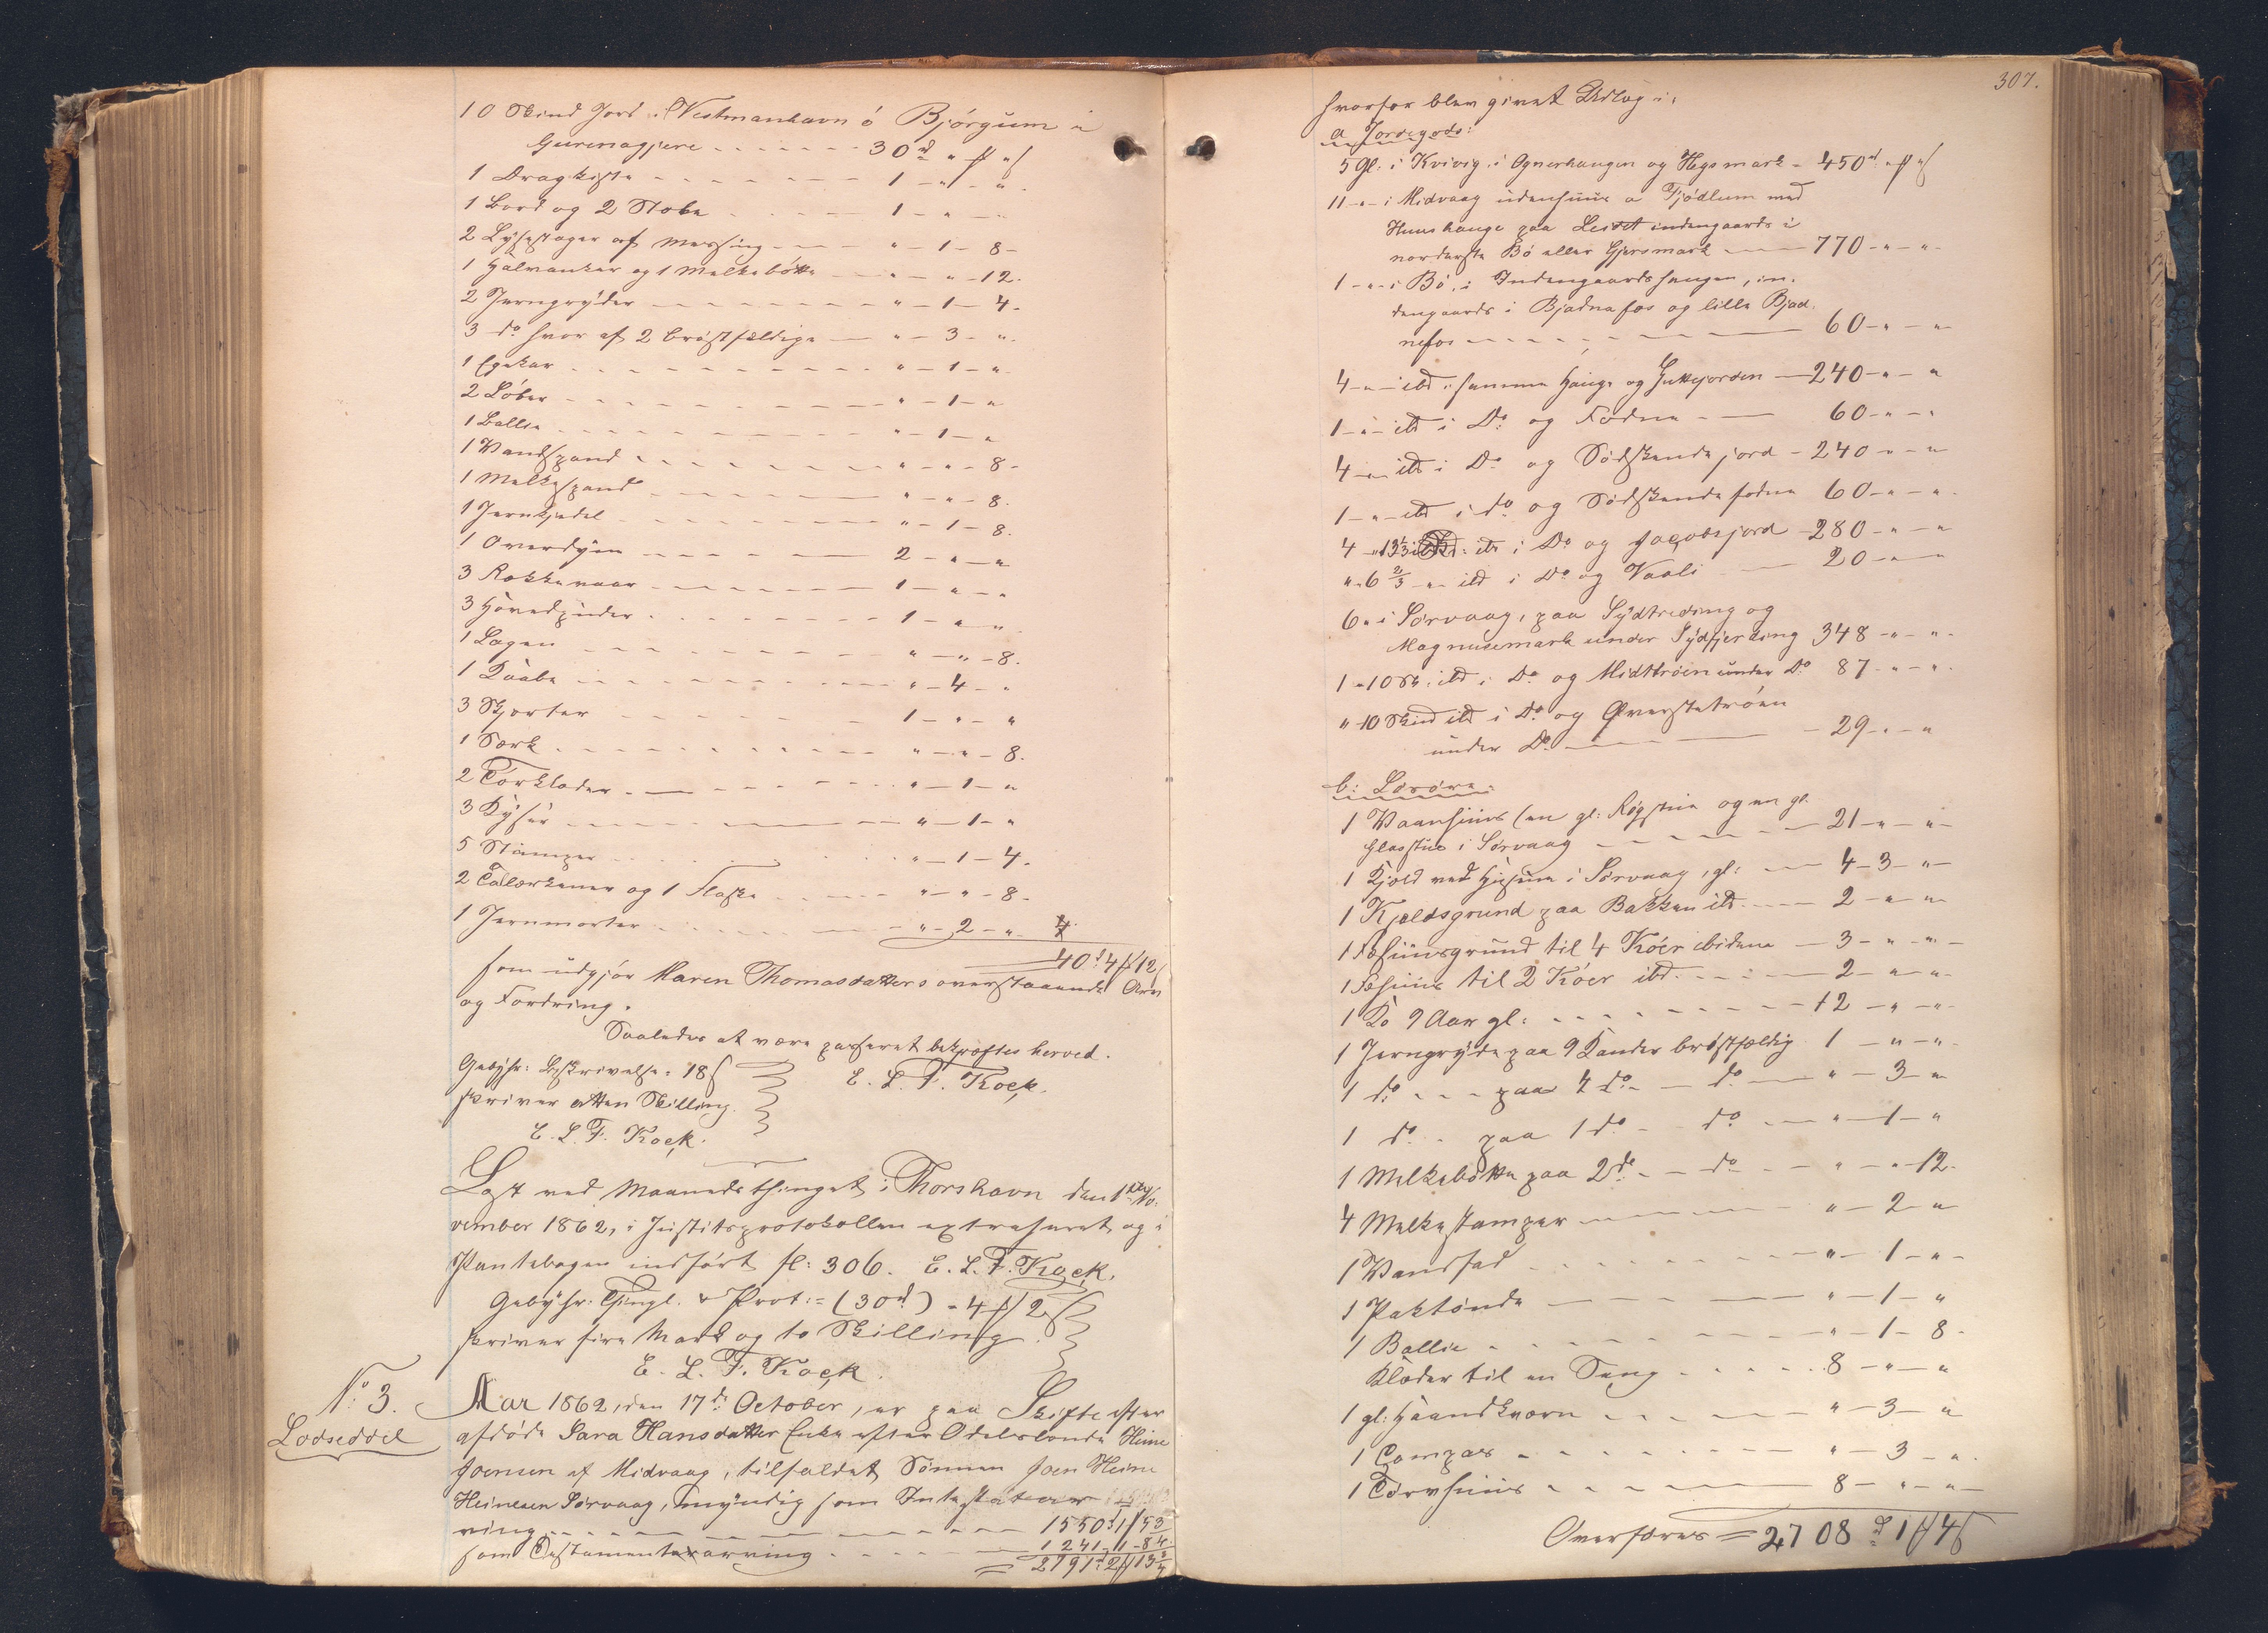 10 Skind Jord i Vestmanhavn ó Bjórgum i
Gurenagjere - - - - 30 rd „ ₰ „ ß
1 Dragkiste - - - - 1 - „ - „
1 Bord og 2 Stole - - - 1 - „ - „
2 Lysestager af Messing - - - „ - 1 - 8 -
1 Halvanker og 1 Melkebøtte - - „ - „ - 12.
2 Jerngryder - - - - „ - 1 - 4.
3 do hvor af 2 brøstfældige - „ - 3 - „.
1 Egekar - - - - „ - 1 - „.
2 Løber - - - - „ - 1 - „
1 Ballie - - - - „ - 1 - „
1 Vandspand - - - - „ - „ - 8 -
1 Melkespand - - - - „ - „ - 8.
1 Jernkjedel - - - - „ - 1 - 8.
1 Overdyne - - - - 2 - „ - „
3 Rokkevaar - - - - 1 - „ - „
3 Hovedpuder - - - - 1 - „ - „
1 Lagen - - - - „ - „ - 8.
1 Kaabe - - - - „ - 4 - „
3 Skjorter - - - - 1 - „ - „
1 Særk - - - - „ - „ - 8.
2 Tørklæder - - - - „ - 1 - „
3 Kyser - - - - „ - 1 - „
5 Stamper - - - - „ - 1 - 4.
2 Tallerkener og 1 Flaske - - - „ - „ - 8 -
1 Jernmorter - - - - „ - 2 - „
40 d 4 ₰ 12 ß
som udgjør Maren Thomasdatters overstaaende Arv
og Fordring.
Saaledes at være passeret bekræftes herved.
Gebyhr: Beskrivelse: 18 ß
E. L. F. Kock.
skriver atten Skilling.
E. L. F. Kock.
Læst ved Maanedsthinget i Thorshavn den 1ste No-
vember 1862, i Justitsprotokollen extraheret og i
Pantebogen indført fl: 306. E. L. F. Kock.
Gebyhr: Thingl. & Prot: = (30 d) - 4 ₰ 2 ß
skriver fire Mark og to Skilling.
E. L. F. Kock.
No 3.
Lodseddel
Aar 1862, den 17de October, er paa Skifte efter
afdøde Sara Hansdatter Enke efter Odelsbonde Heine
Joensen af Midvaag, tilfaldet Sønnen Joen Heine
Heinesen Sørvaag, myndig som Intestatar
ving - - - - 1550 d 1 ₰ 5
som Testamentarving - - - 1241 - 1 - 8
= 2791 d 2 ₰ 13 ¾
307.
hvorfor blev givet Udlæg i:
a Jordegods:
5 Gl: i Kvivig i Ognerhaugen og Hegsmark - 450 d „ ₰ „ ß
11 - „ - i Midvaag udenhuus a Tjódlum med
Huushauge paa Leitet indengaards i
norderste Bó eller Gjersmark - - 770 - „ - „ -
1 - „ - i Bó, i Indengaardshaugen, in-
dengaards i Bjadnafos og lille Bjad-
nefos - - - - 60 - „ - „
4 - „ - ibd i samme Hauge og Guttejorden - 240 - „ - „
1 - „ - ibd i Do og Fodne - - 60 - „ - „
4 - „ - ibd i Do og Sødskende jord - 240 - „ - „
1 - „ - ibd i do og Sødskende fodne 60 - „ - „.
4 - „ 13⅓ : ibd i Do og Jacobsjord - 280 - „ - „
„ - 6 ⅔ - „ - ibd i Do og Vaali - - 20 - „ - „
6 „ i Sørvaag, paa Sydtreding og
Magnusemark under Sydfjerding 348 - „ - „ -
1 - 10 Sk: ibd i Do og Midttróen under Do 87 - „ - „.
„ - 10 Skind ibd i Do og Øverstetróen
under Do - - - - 29 - „ - „
b: Løsøre:
1 Vaanhuus (en gl: Røgstue og en gl:
Glasstue i Sørvaag - - - - 21 - „ - „ -
1 Kjæld ved Husene i Sørvaag, gl: - - 4 - 3 - „ -
1 Kjældsgrund paa Bakken ibd - - 2 - „ - „
1 Fæhuusgrund til 4 Kóer ibidem - 3 - „ - „ -
1 Fæhuus til 2 Kóer ibd. - - - 2 - „ - „
1 Ko 9 Aar gl: - - - - 12 - „ - „
1 Jerngryde paa 9 Kander brøstfældig 1 - „ - „ -
1 do - - - paa 4 do - - do - „ - 3 - „
1 do - paa 1 do - - do - - „ - 1 - „
1 Melkebøtte paa 2 do - - do - - „ - „ - 12.
4 Melkestamper - - - - „ - 2 - „
1 Vandfad - - - - „ - 1 - „ -
1 Paktønde - - - - „ - 1 - „
1 Ballie - - - - „ - 1 - 8 -
Klæder til en Seng - - - - 8 - „ - „
1 gl: Haandkværn - - - - „ - 3 - „
1 Compas - - - - „ - 3 - „.
1 Tørvhuus - - - - 8 - „ - „ -
Overføres = 2708 d 1 ₰ 4 ß